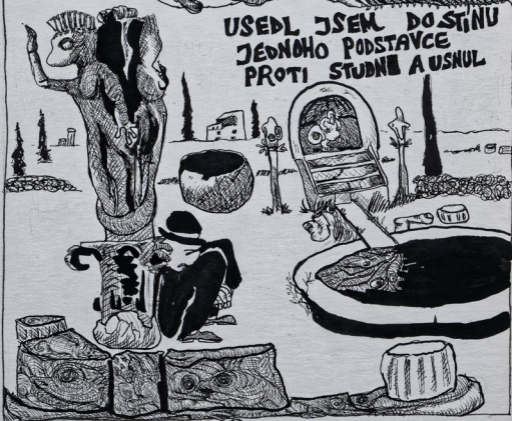 USEDL JSEM DO STÍNU
JEDNOHO PODSTAVCE
PROTI STUDNI A USNUL